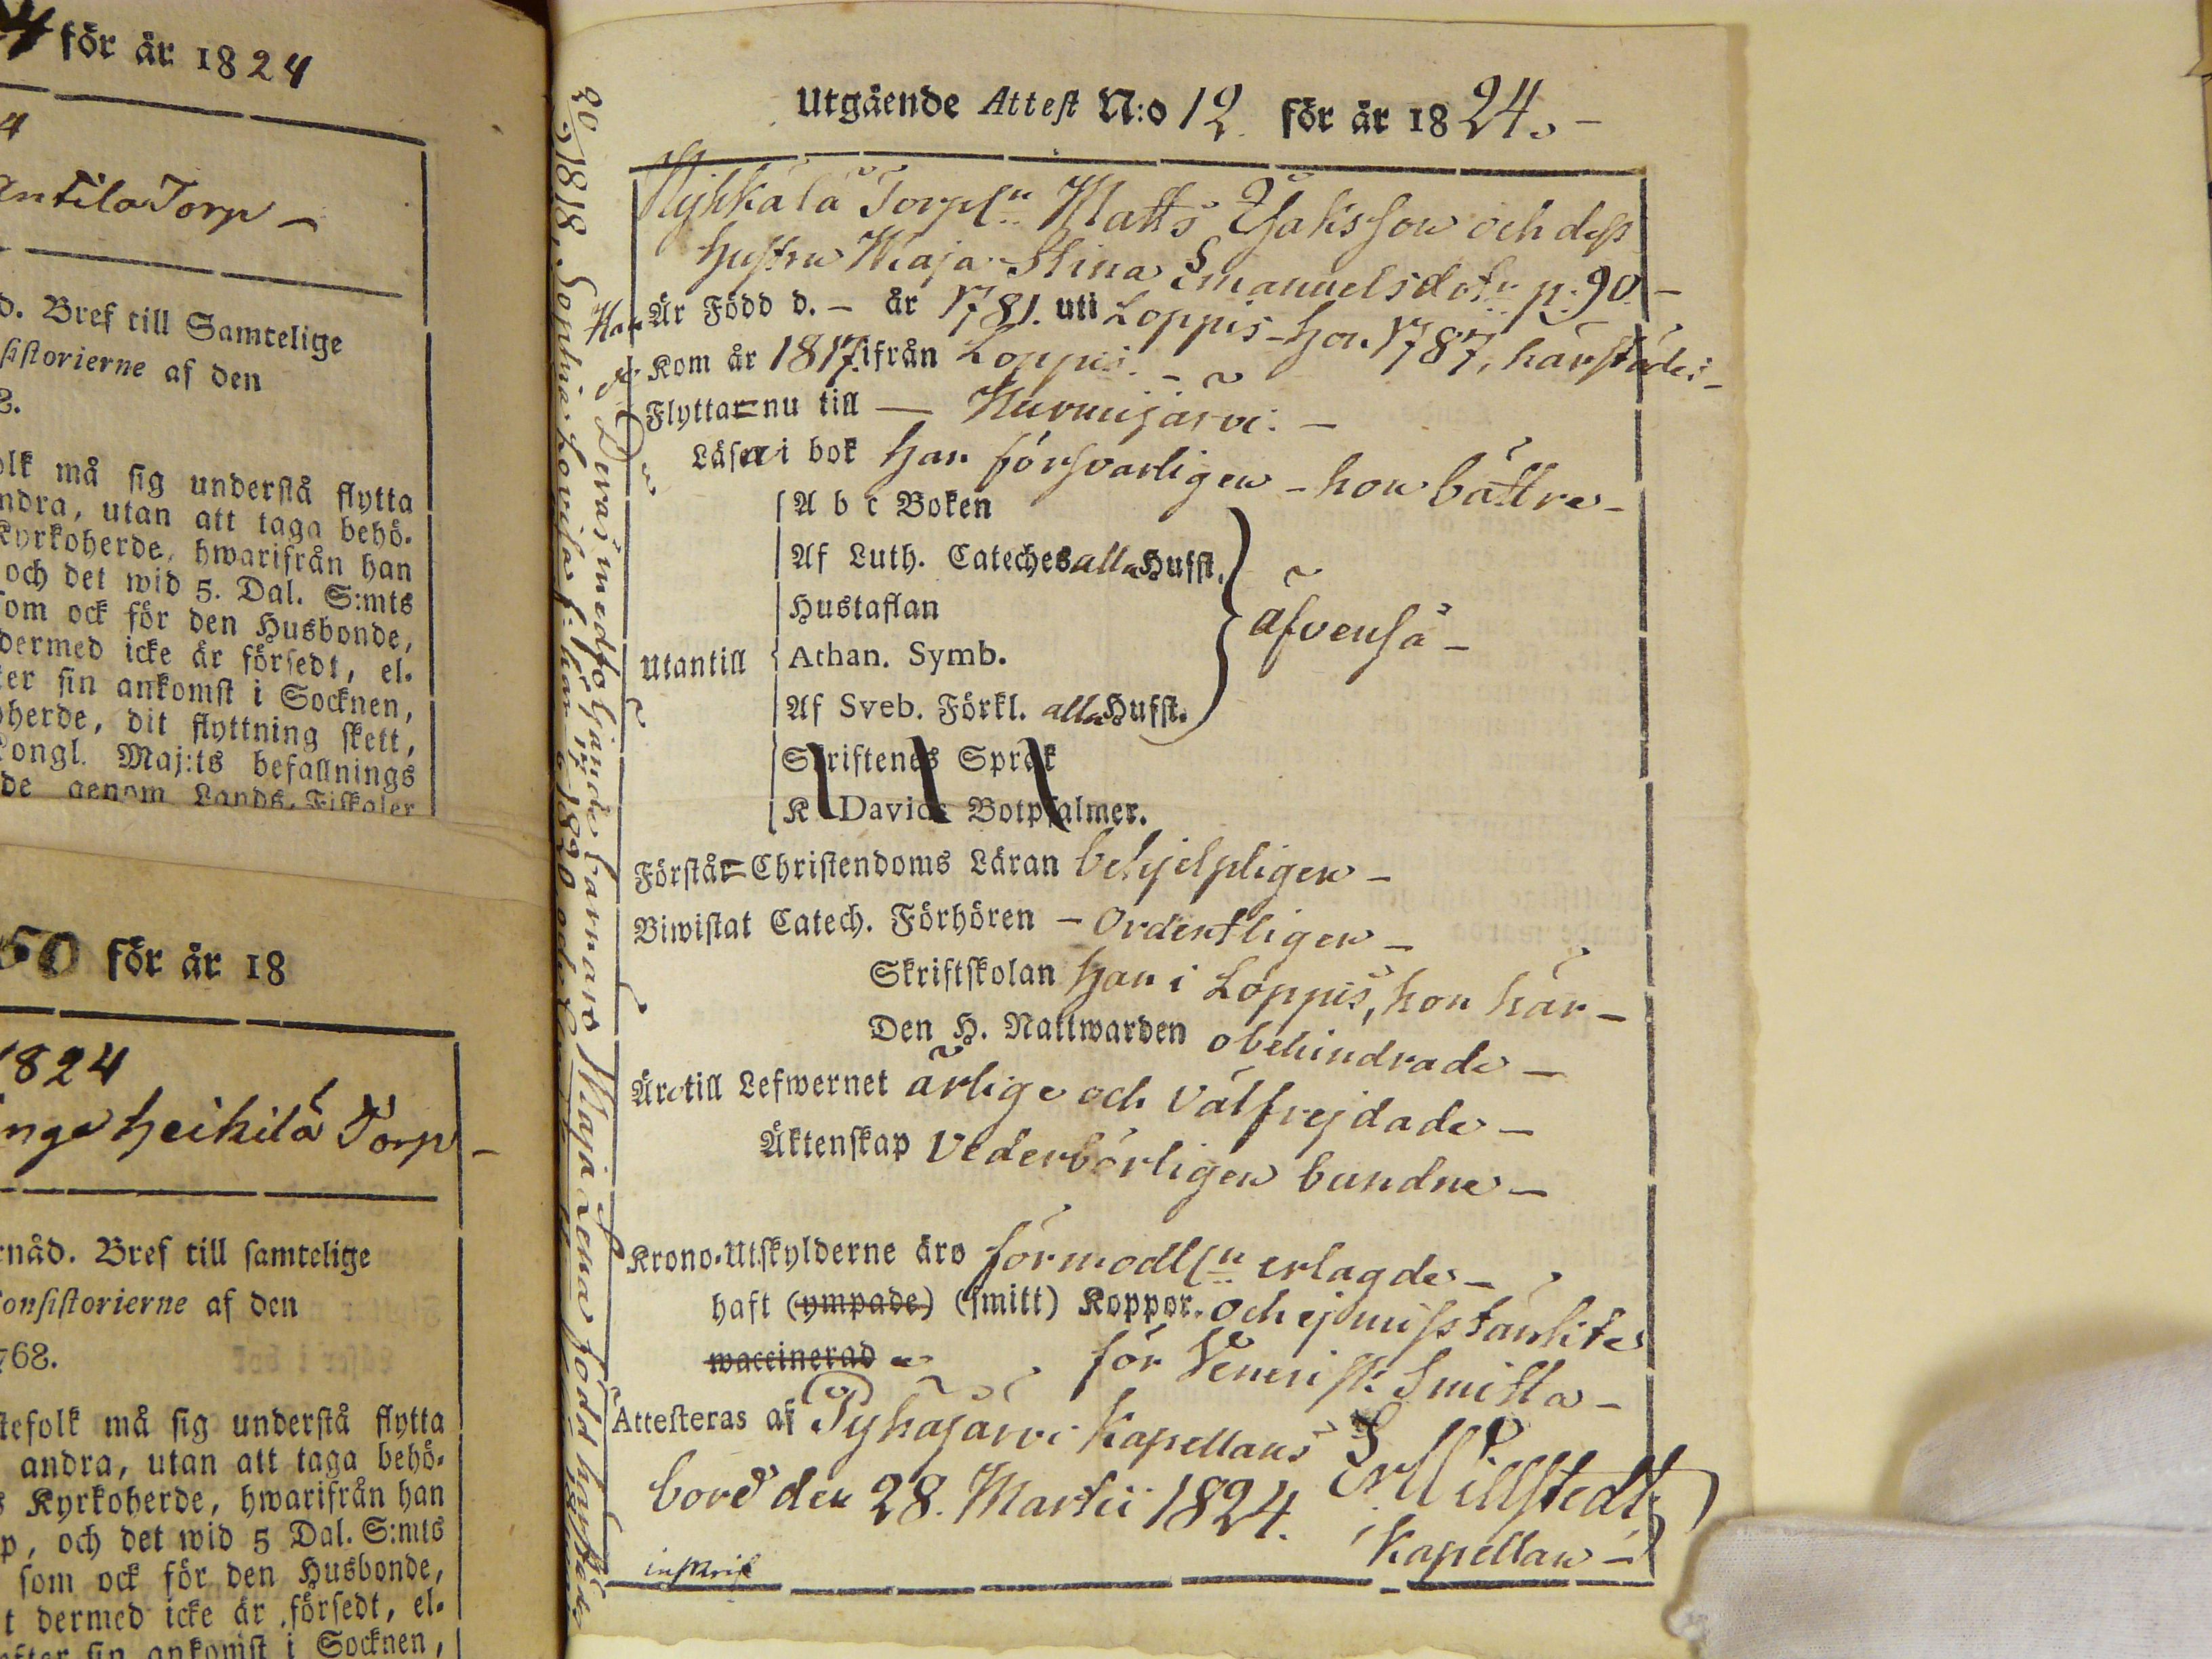 4 för år 1824
4
Antila Torp –
d. Bref till Samtelige
sistorierne af den
2.
olk må sig understå flytta
ndra, utan att taga behö-
Kyrkoherde, hwarifrån han
och det wid 5. Dal. S:mts
som ock för den Husbonde,
dermed icke är försedt, el-
ter sin ankomst i Socknen,
oherde, dit flyttning skett,
Kongl. Maj:ts befallnings
de genom Lands-Fiskaler
50 för år 18
1824
inge Heikilä Torp –
rnåd. Bref till samtelige
Consistorierne af den
768.
stefolk må sig understå flytta
andra, utan att taga behö-
s Kyrkoherde, hwarifrån han
p, och det wid 5 Dal. S:mts
som ock för den Husbonde,
t dermed icke är försedt, el-
efter sin ankomst i Socknen,
Utgående Attest N:o 12 för år 1824. –
Torpn Matts Isaksson och dess
hustru Maja Stina Emanuelsdotr p. 90 –
Han Är Född d. – år 1781. uti Loppis – hon 1787, härstädes –
Kom år 1817. ifrån Loppis. –
Flytta nu till — Nurmijärvi. –
Läsa i bok han försvarligen – hon bättre –
Utantill
A b c Boken
Af Luth. Cateches alla Hufst.
Hustaflan
Athan. Symb.
Af Sveb. Förkl. alla Hufst.
äfvenså –
Skriftenes Språk
K Davids Botpsalmer.
Förstå Christendoms Läran behjelpligen –
Biwistat Catech. Förhören – Ordentligen –
Skriftskolan han i Loppis, hon här –
Den H. Nattwarden obehindrade –
Äro till Lefwernet ärlige och välfrejdade –
Äktenskap Vederbörligen bundne –
Krono-Utskylderne äro förmodln erlagde –
haft (ympade) (smitt) Koppor. och ej misstänkte
waccinerad för Venerisk Smitta –
Attesteras af Pyhäjärvi Kapellans
bord den 28. Martii 1824. Er Millstedt
Kapellan –
D Deras medföljande barn äro Maja Lena född härstädes
20/2 1818, Sophia Lovisa f. här 1820 och